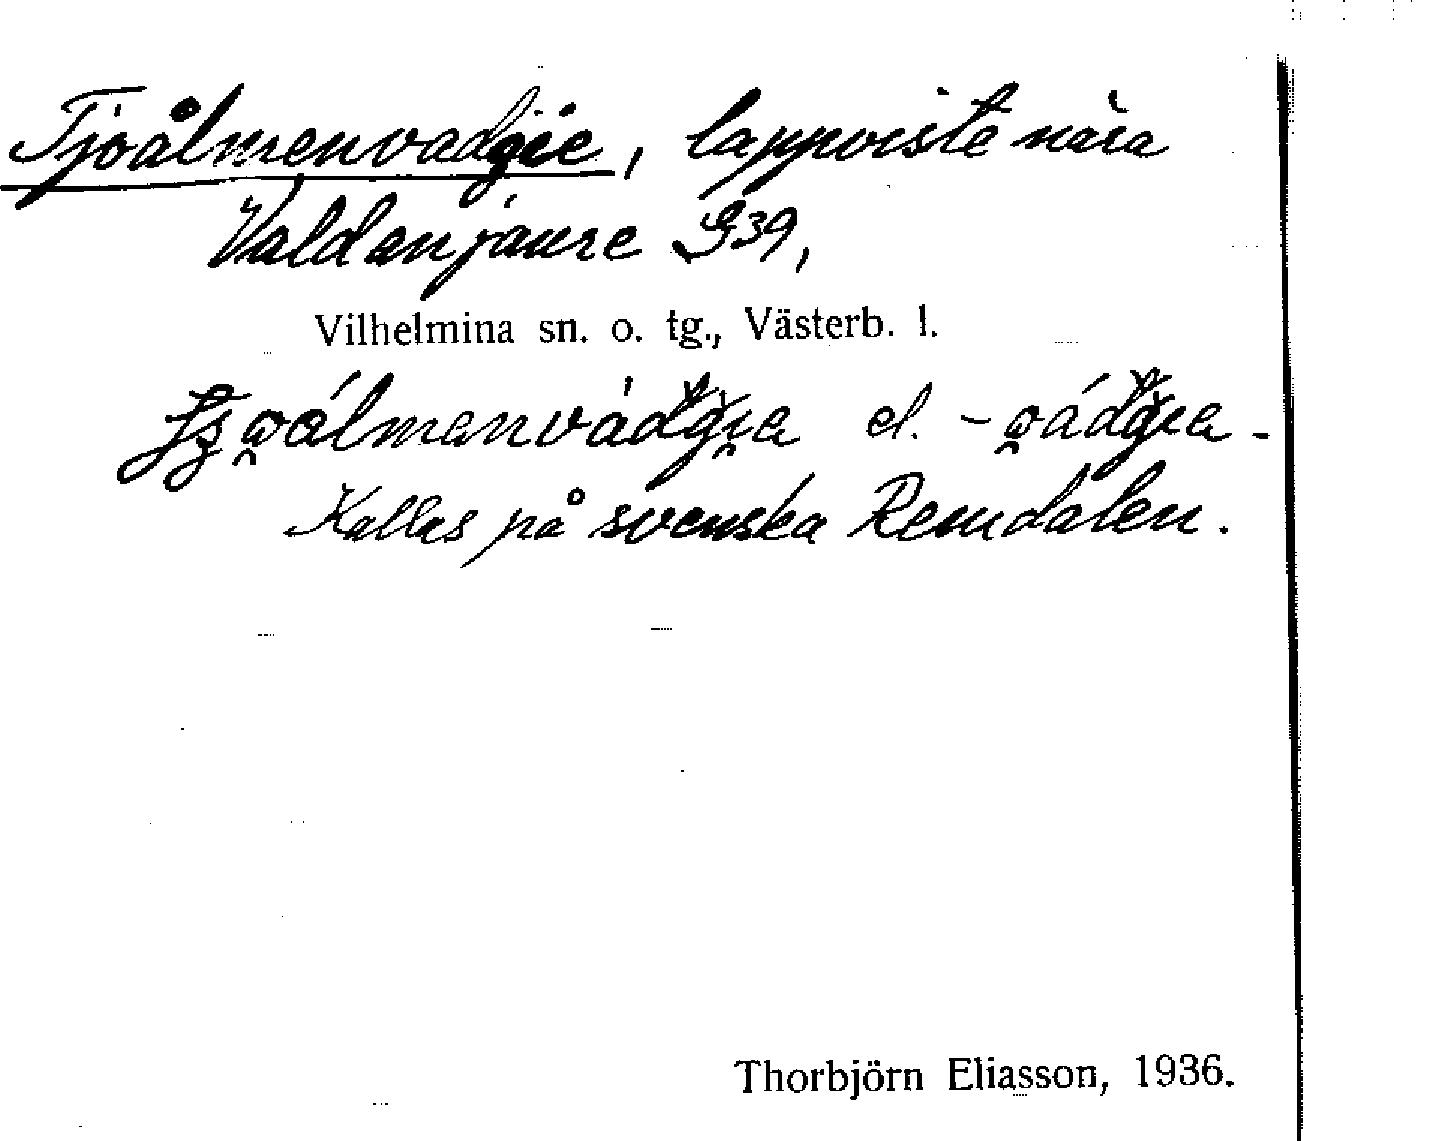 Tjoålmenvadgie, lappviste nära
Valdanjaure G39,
Vilhelmina sn. o. tg., Västerb. l.
el.
Kallas på svenska Remdalen.
Thorbjörn Eliasson, 1936.